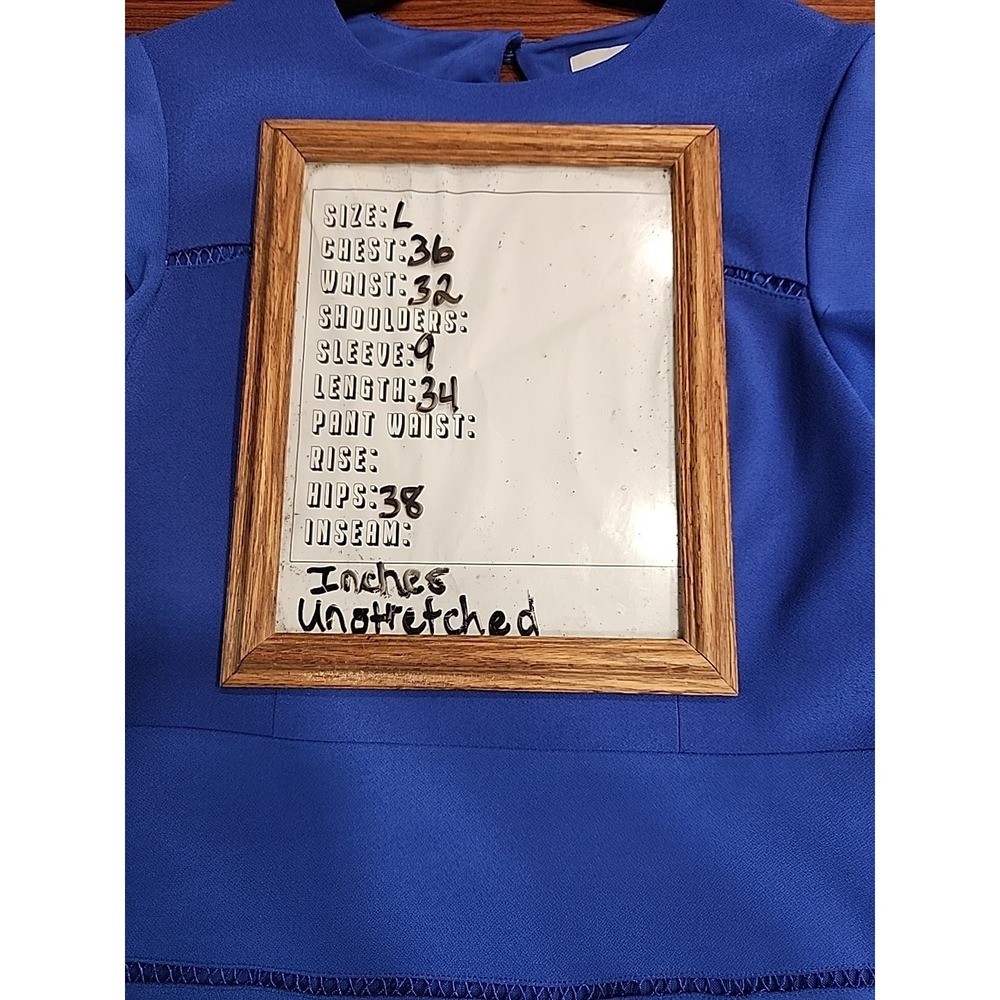 SIZE: L
CHEST: 36
WAIST: 32
SHOULDERS:
SLEEVE: 9
LENGTH: 34
PANT WAIST:
RISE:
HIPS: 38
INSEAM:
Inches
Unstretched